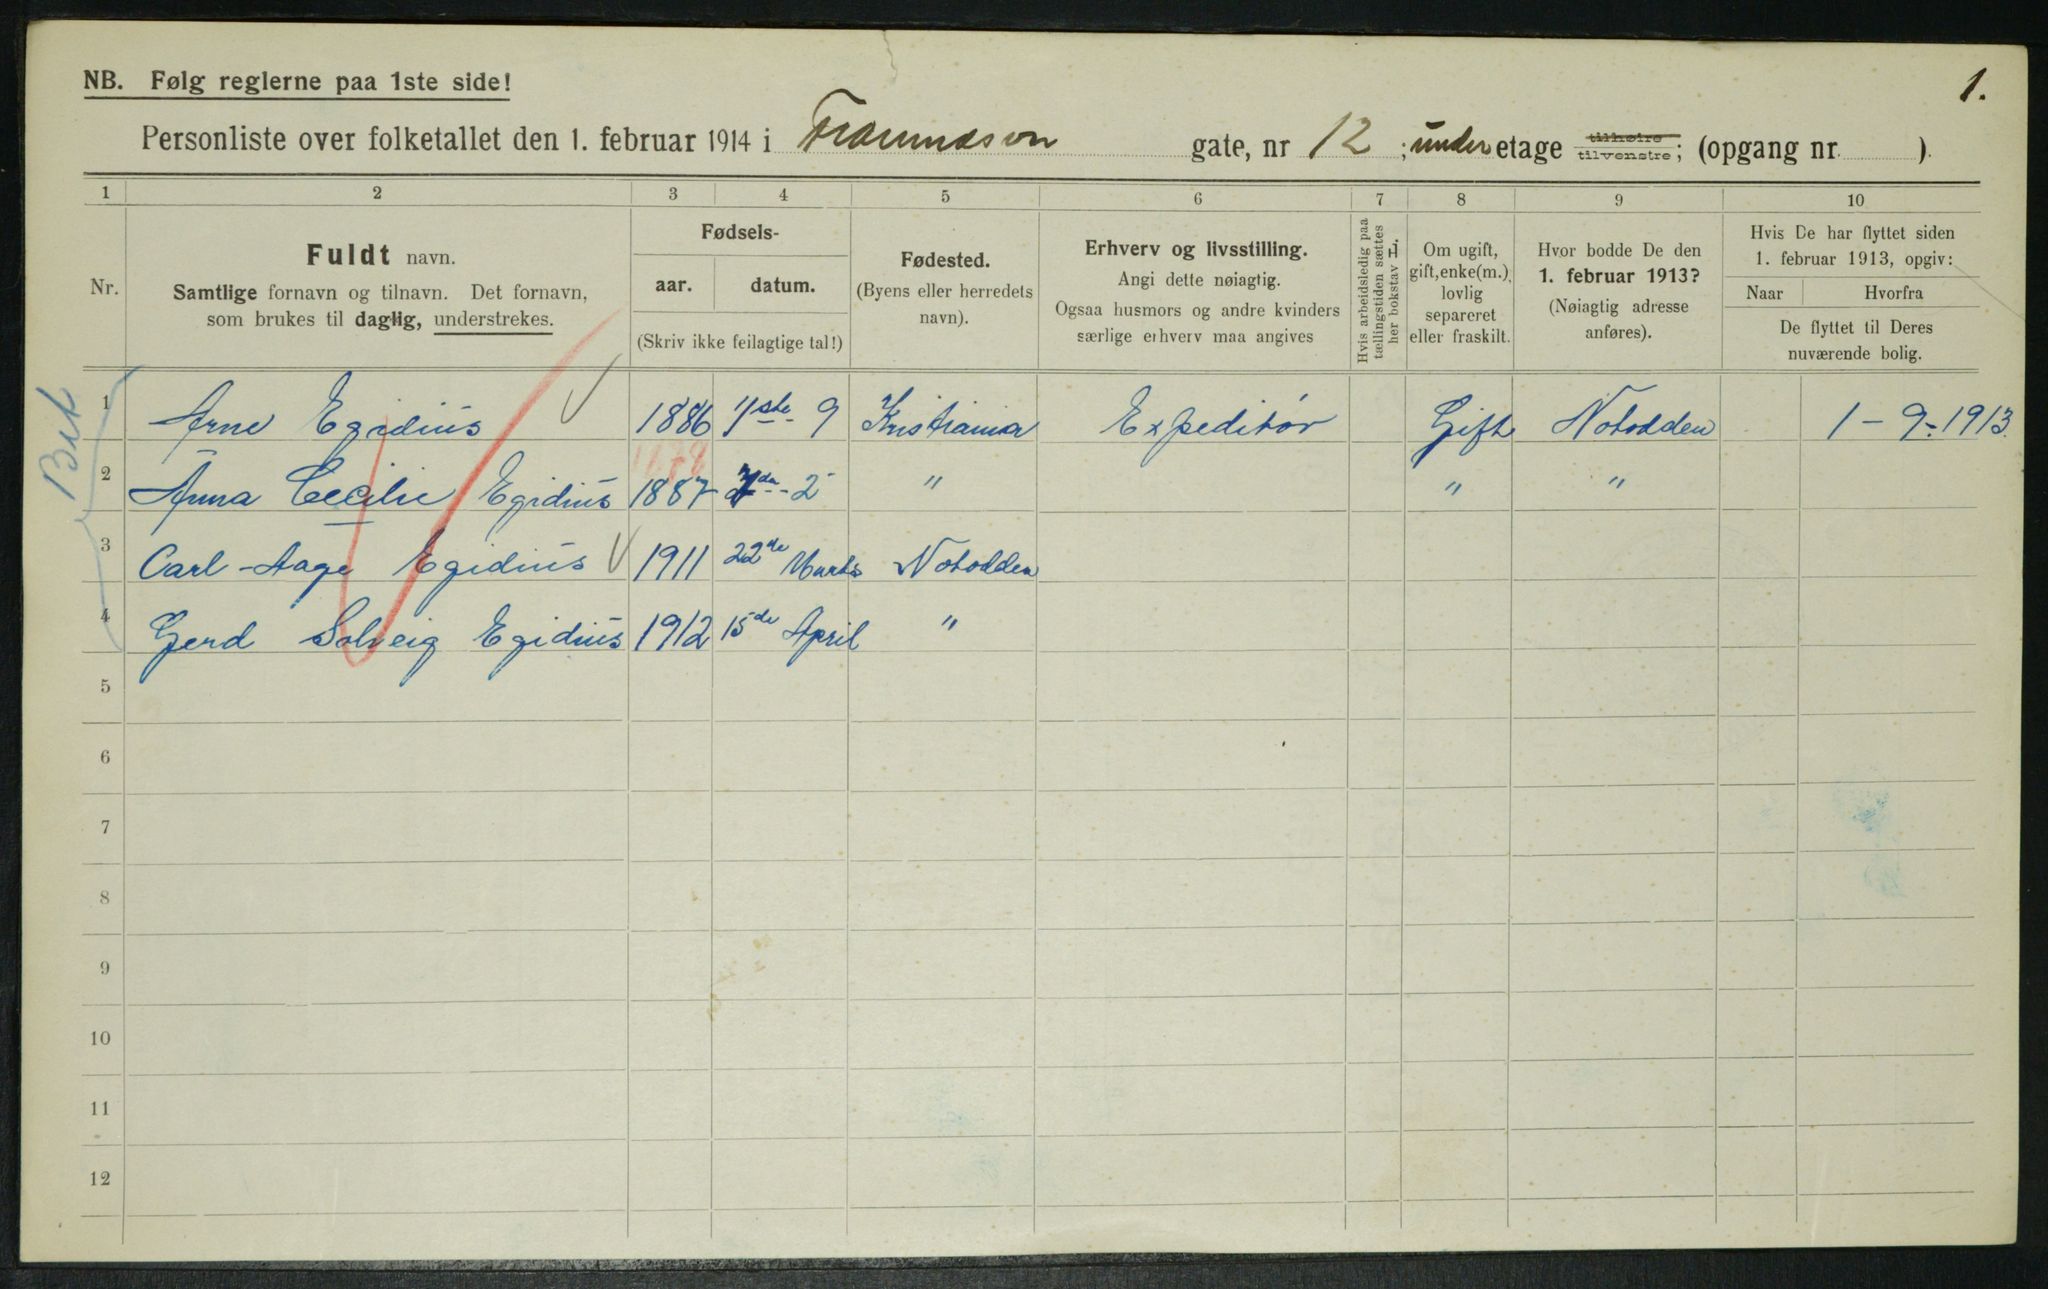 1.
NB. Følg reglerne paa 1ste side!
Personliste over folketallet den 1. februar 1914 i gate, nr 12; under etage tilhøire tilvenstre; (opgang nr. ).
1 2 3 4 5 6 7 8 9 10
Nr.
Fuldt navn.
Samtlige fornavn og tilnavn. Det fornavn,
som brukes til daglig, understrekes.
Fødsels-
aar. datum.
(Skriv ikke feilagtige tal!)
Fødested.
(Byens eller herredets
navn).
Erhverv og livsstilling.
Angi dette nøiagtig.
Ogsaa husmors og andre kvinders
særlige erhverv maa angives
Hvis arbeidsledig paa
tællingstiden sættes
her bokstav L.
Om ugift,
gift, enke(m.),
lovlig
separeret
eller fraskilt.
Hvor bodde De den
1. februar 1913?
(Nøiagtig adresse
anføres).
Hvis De har flyttet siden
1. februar 1913, opgiv:
Naar Hvorfra
De flyttet til Deres
nuværende bolig.
1 Arne Egidius 1886 1ste 9 Kristiania Expeditør Gift Notodden 1-9-1913.
1878
2 Anna Cecilie Egidius 1887 2 " " "
3 Carl-Aage Egidius 1911 22de Marts Notodden
4 Gerd Solveig Egidius 1912 15de April "
5
6
7
8
9
10
11
12